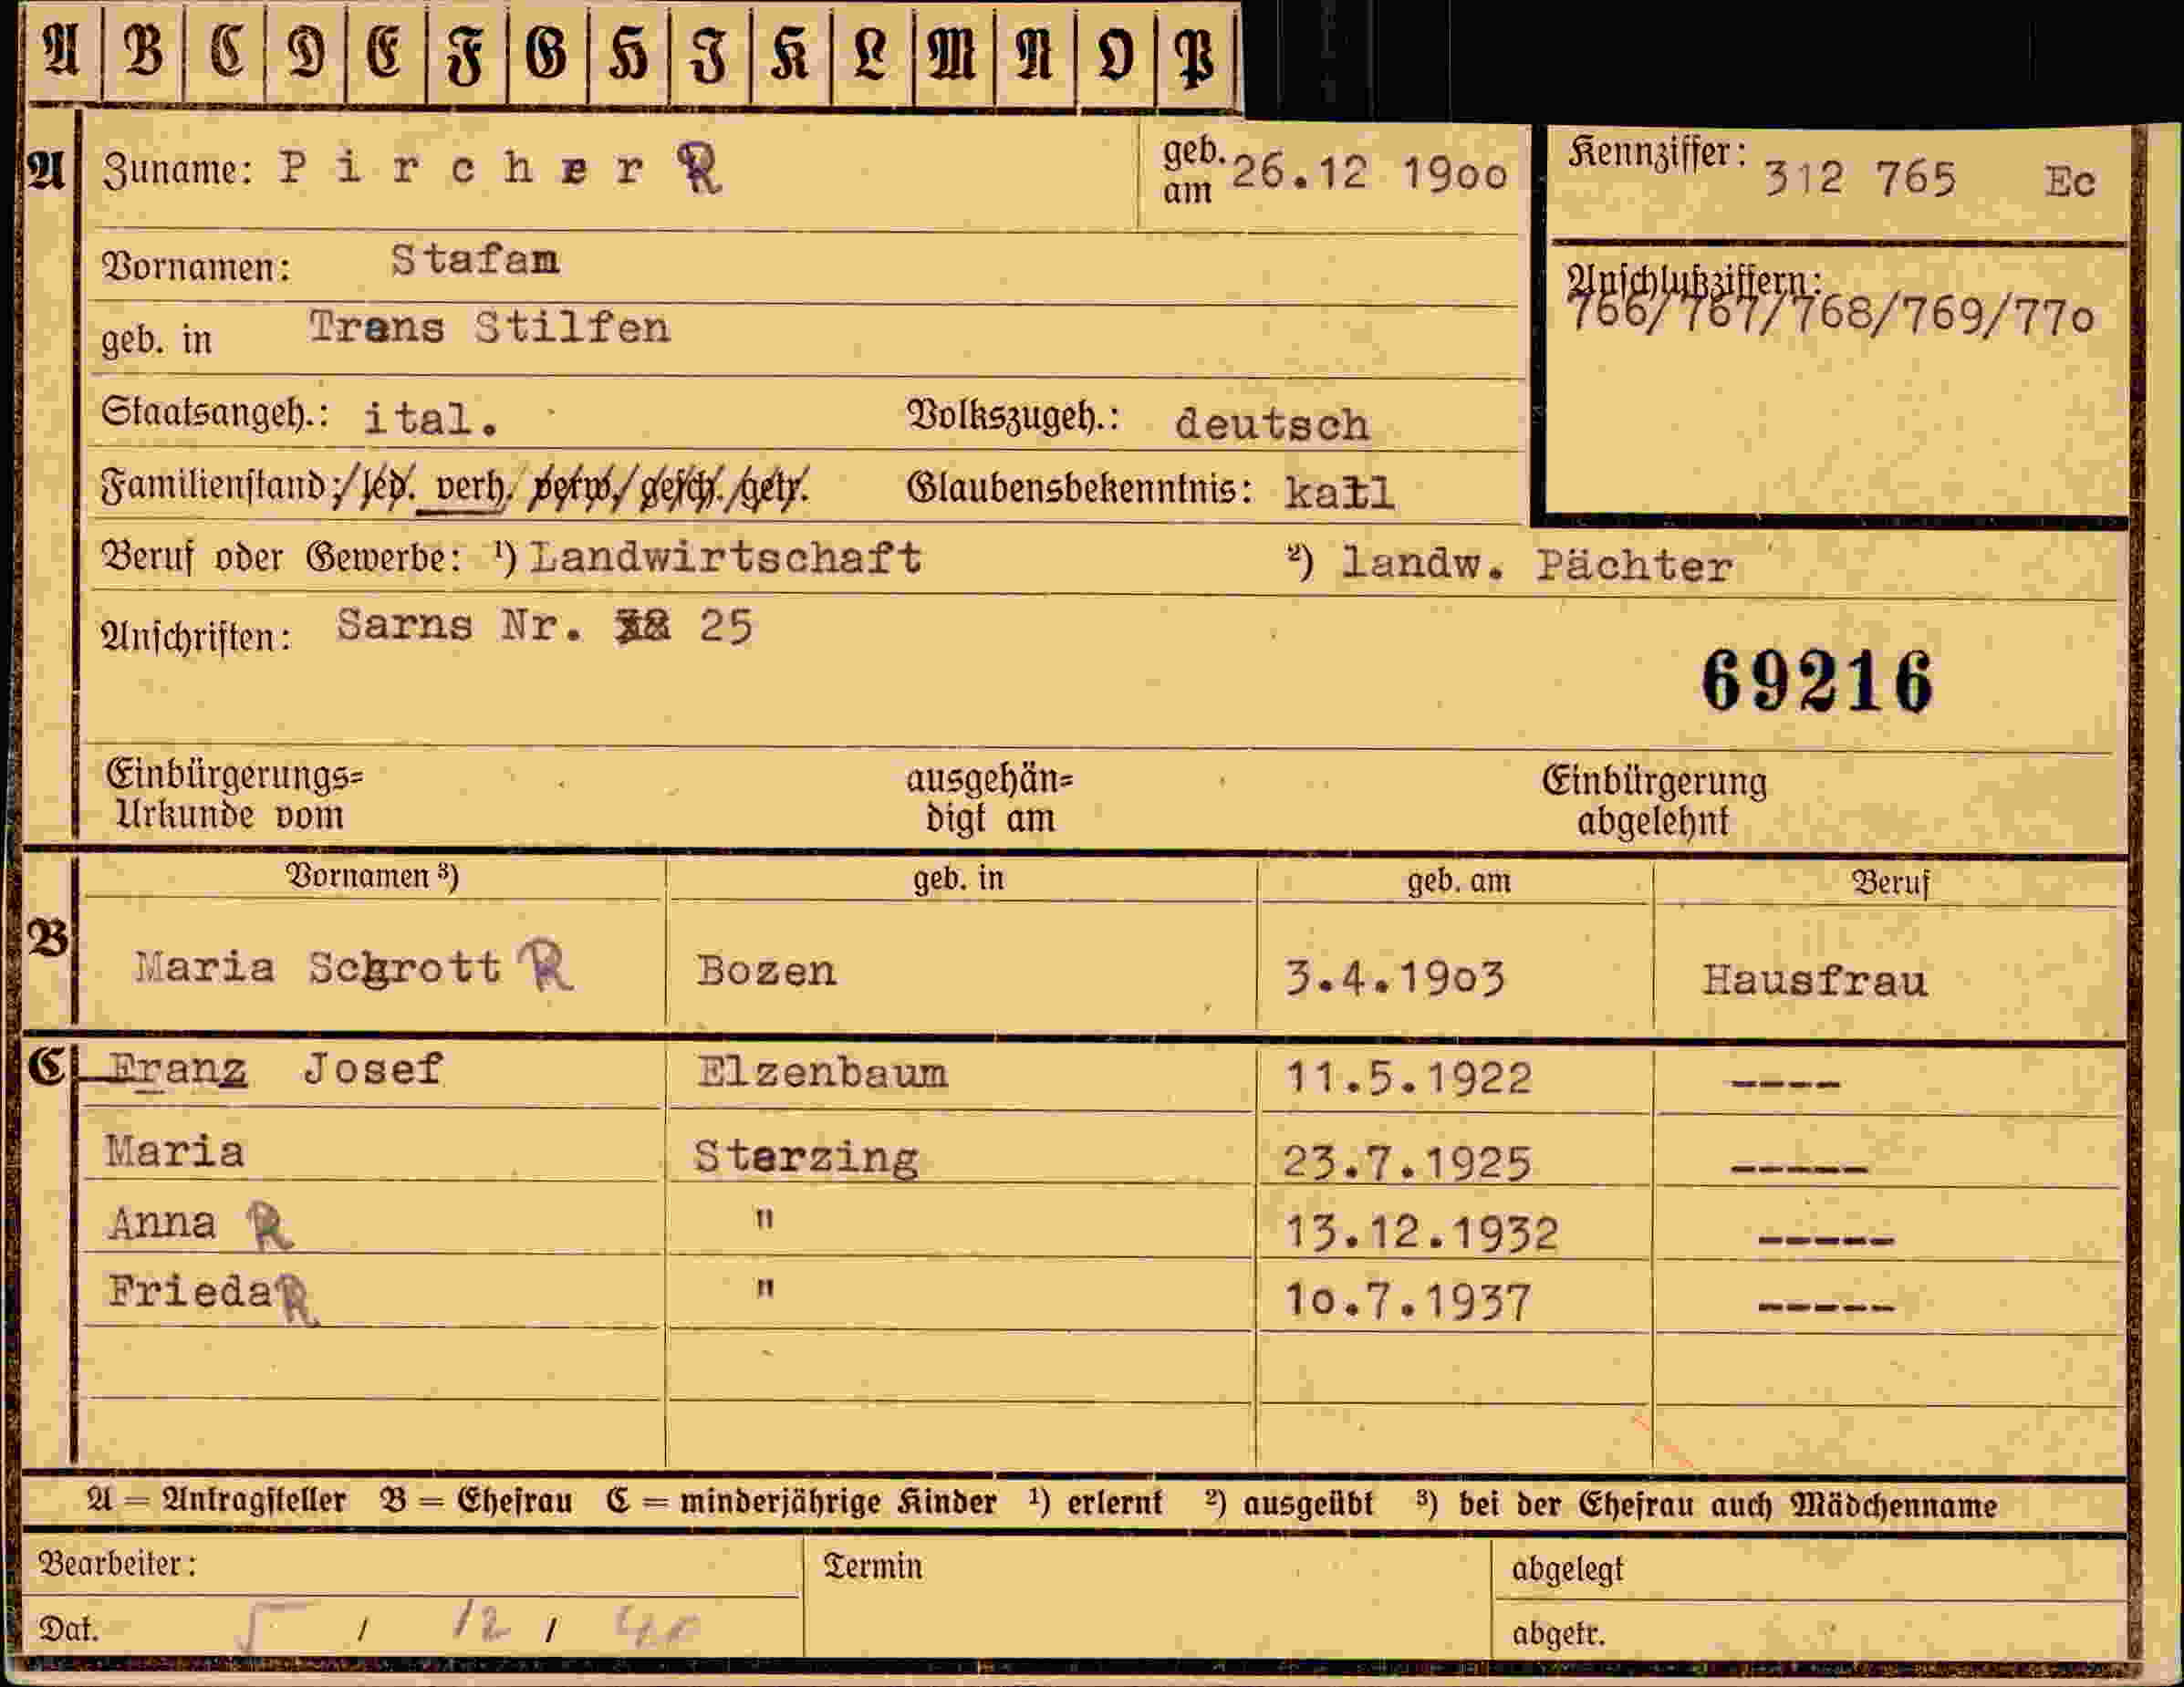 A B C D E F G H I K L M N O P
A Zuname: Pircher R geb. am 26.12 1900 Kennziffer: 312 765 Ec
Vornamen: Stafan
Anschlußziffern: 766/767/768/769/770
geb. in Trans Stilfen
Staatsangeh.: ital. Volkszugeh.: deutsch
Familienstand: led. verh. verw. gesch. getr. Glaubensbekenntnis: katl
Beruf oder Gewerbe: ¹) Landwirtschaft ²) landw. Pächter
Anschriften: Sarns Nr. 25
69216
Einbürgerungs= ausgehän= Einbürgerung
Urkunde vom digt am abgelehnt
Vornamen ³) geb. in geb. am Beruf
B Maria Schrott R Bozen 3.4.1903 Hausfrau
C Franz Josef Elzenbaum 11.5.1922 ----
Maria Starzing 23.7.1925 -----
Anna R " 13.12.1932 -----
Frieda R " 10.7.1937 -----
A = Antragsteller B = Ehefrau C = minderjährige Kinder ¹) erlernt ²) ausgeübt ³) bei der Ehefrau auch Mädchenname
Bearbeiter: Termin abgelegt
Dat. 5 / 12 / 40 abgetr.